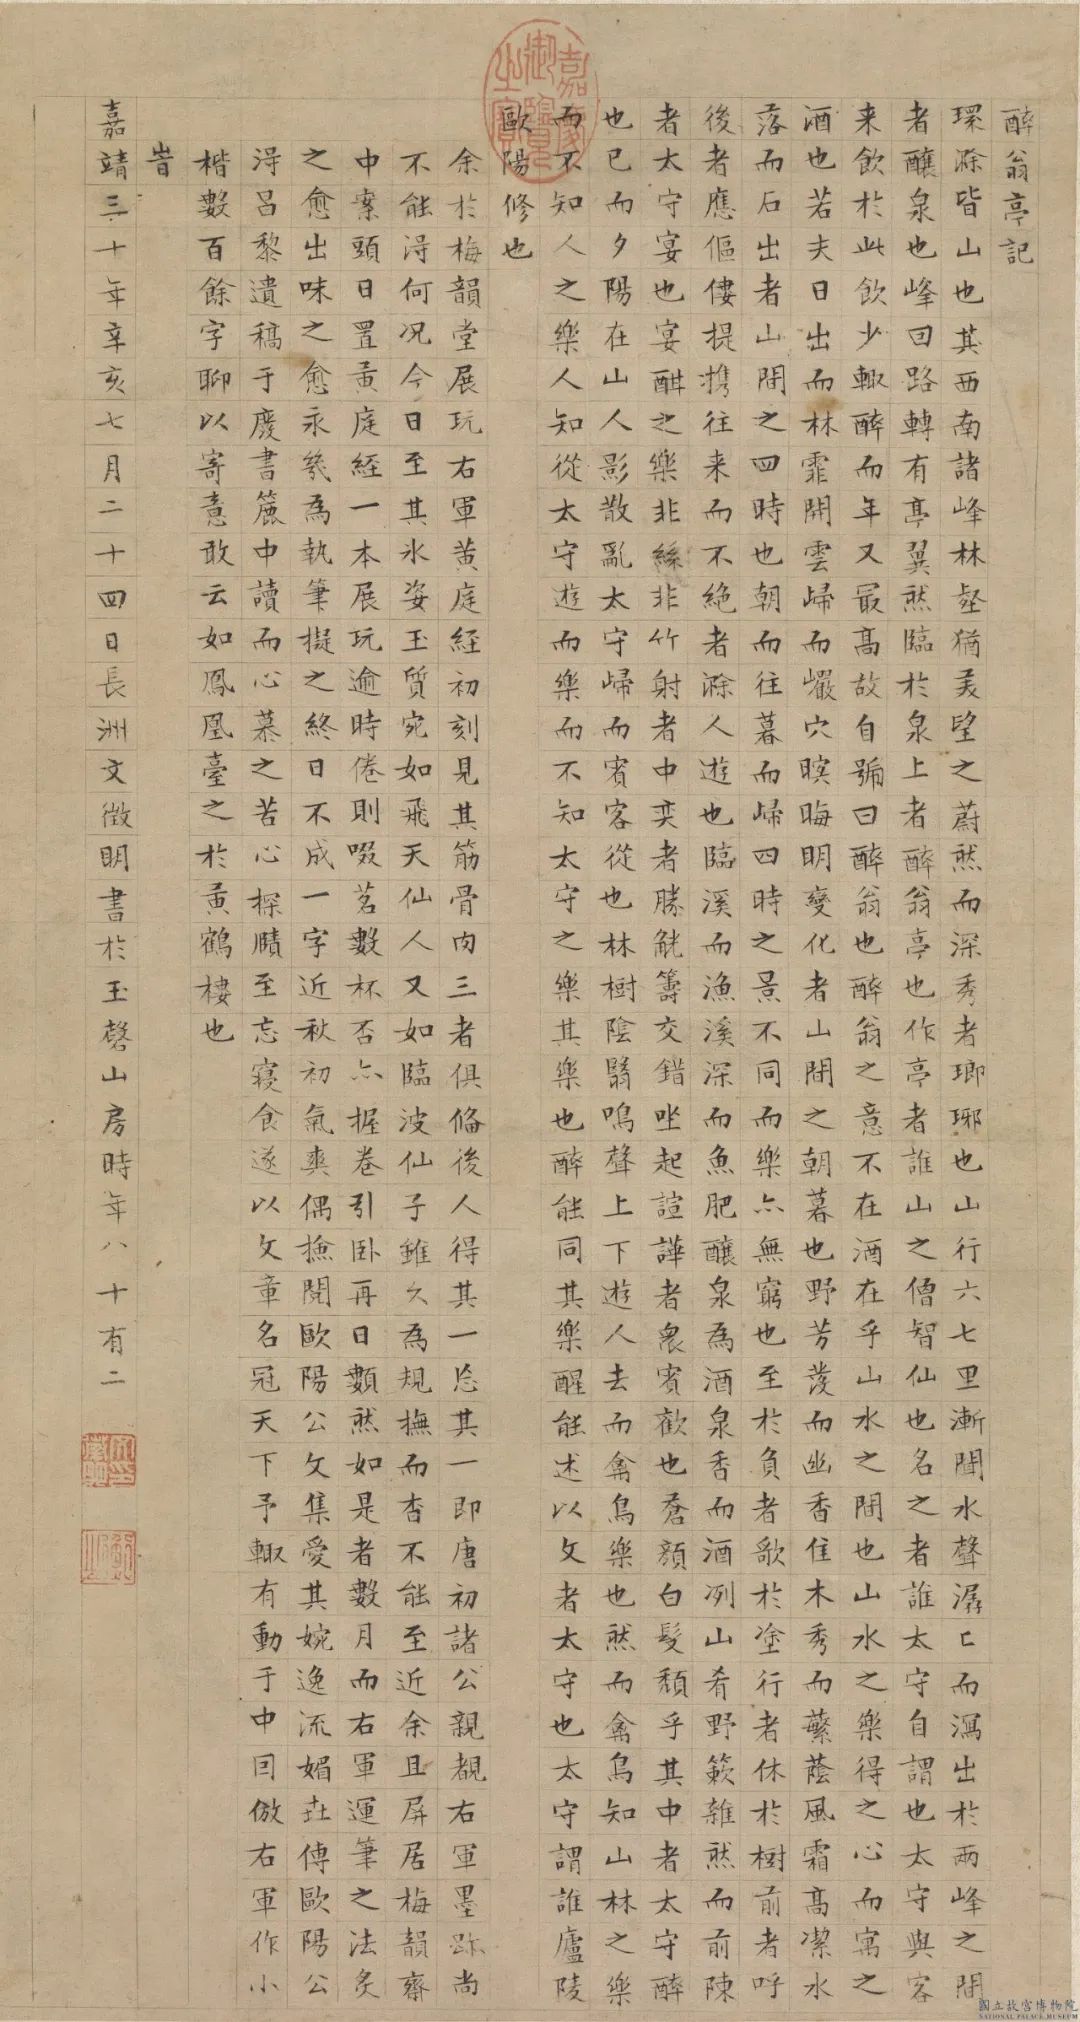 醉翁亭記
環滁皆山也其西南諸峰林壑猶美望之蔚然而深秀者瑯琊也山行六七里漸聞水聲潺〻而瀉出於兩峰之間
者釀泉也峰回路轉有亭翼然臨於泉上者醉翁亭也作亭者誰山之僧智仙也名之者誰太守自謂也太守與客
来飲於此飲少輙醉而年又最高故自號曰醉翁也醉翁之意不在酒在乎山水之間也山水之樂得之心而寓之
酒也若夫日出而林霏開雲歸而巖穴暝晦明變化者山間之朝暮也野芳發而幽香佳木秀而蘩蔭風霜高潔水
落而石出者山間之四時也朝而往暮而歸四時之景不同而樂亦無窮也至於負者歌於塗行者休於樹前者呼
後者應傴僂提携往来而不絶者滁人遊也臨溪而漁溪深而魚肥釀泉為酒泉香而酒冽山肴野蔌雜然而前陳
者太守宴也宴酣之樂非絲非竹射者中奕者勝觥籌交錯坐起諠譁者衆賓歡也蒼顔白髮頹乎其中者太守醉
也已而夕陽在山人影散亂太守歸而賓客從也林樹陰翳鳴聲上下遊人去而禽鳥樂也然而禽鳥知山林之樂
而不知人之樂人知從太守遊而樂而不知太守之樂其樂也醉能同其樂醒能述以文者太守也太守謂誰廬陵
歐陽修也
余於梅韻堂展玩右軍黄庭經初刻見其筋骨肉三者俱俻後人得其一忘其一即唐初諸公親覩右軍墨跡尚
不能淂何况今日至其氷姿玉質宛如飛天仙人又如臨波仙子雖久為規撫而杳不能至近余且屏居梅韻齋
中案頭日置黄庭經一本展玩逾時倦則啜茗數杯否亦握卷引卧再日顙然如是者數月而右軍運筆之法炙
之愈出味之愈永幾為執筆擬之終日不成一字近秋初氣爽偶撿閱歐陽公文集愛其婉逸流媚並傳歐陽公
淂呂黎遺稿于廢書簏中讀而心慕之苦心探賾至忘寢食遂以文章名冠天下予輙有動于中囙倣右軍作小
楷數百餘字聊以寄意敢云如鳳凰臺之於黄鶴樓也
旹
嘉靖三十年辛亥七月二十四日長洲文徵明書於玉磬山房時年八十有二
嘉慶御覽之寶
文徵明印
衡山
國立故宮博物院
NATIONAL PALACE MUSEUM